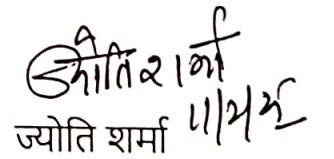 ज्योति शर्मा
ज्योति शर्मा